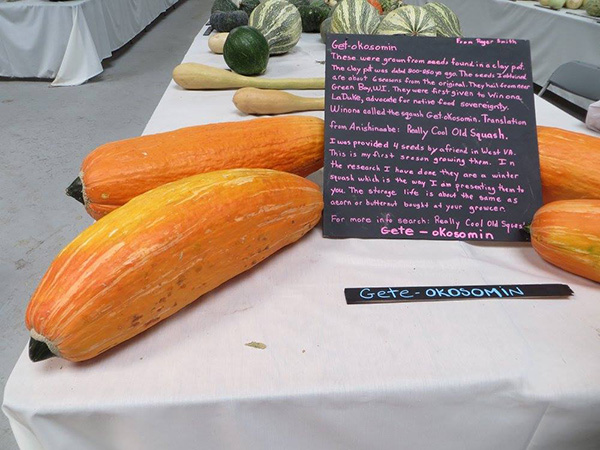 Get-okosomin From Roger Smith
These were grown from seeds found in a clay pot.
The clay pot was dated 800-850 yr ago. The seeds I obtained
are about 6 seasons from the original. They hail from near
Green Bay, WI. They were first given to Winona
LaDuke, advocate for native food sovereignty.
Winona called the squash Get-okosomin. Translation
from Anishinaabe: Really Cool Old Squash.
I was provided 4 seeds by a friend in West VA.
This is my first season growing them. In
the research I have done they are a winter
squash which is the way I am presenting them to
you. The storage life is about the same as
acorn or butternut bought at your grocer.
For more info search: Really Cool Old Squash
Gete - okosomin
Gete-OKOSOMIN